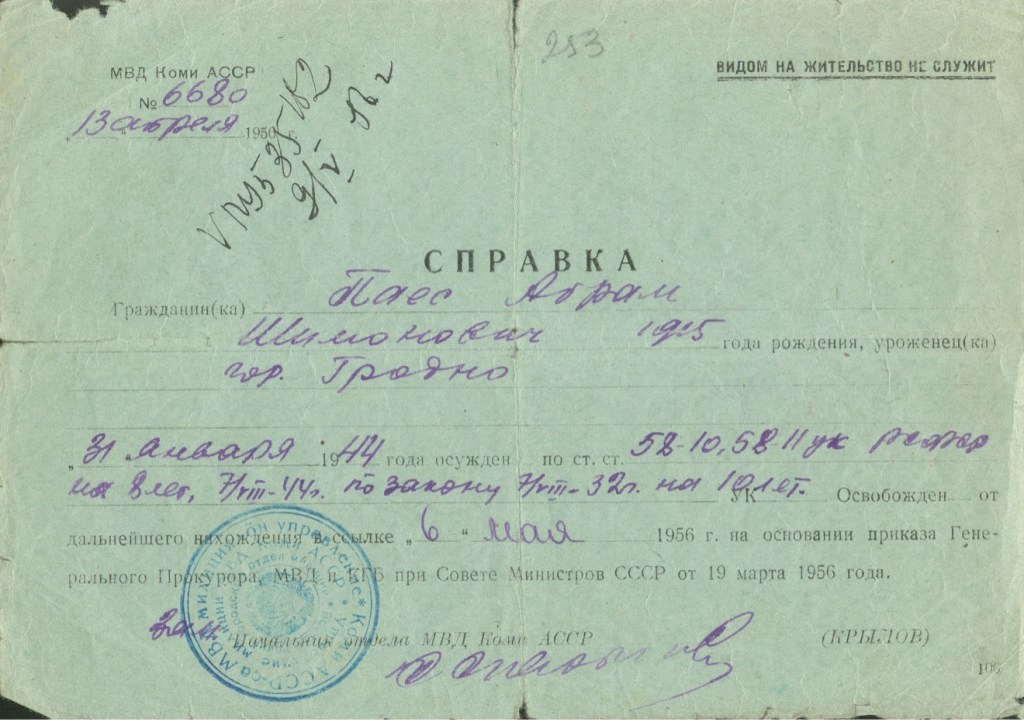 253
МВД Коми АССР
ВИДОМ НА ЖИТЕЛЬСТВО НЕ СЛУЖИТ
№ 6680
"13 апреля 1956
СПРАВКА
Гражданин(ка) Паес Абрам
Шимонович 1915 года рождения, уроженец(ка)
гор. Гродно
"31 января 1944 года осужден по ст. ст. 58-10, 58-11 ук РСФСР
на 8 лет, 7/VIII-44г. по закону 7/VIII-32г. на 10 лет. УК Освобожден от
дальнейшего нахождения в ссылке "6" мая 1956 г. на основании приказа Гене-
рального Прокурора, МВД и КГБ при Совете Министров СССР от 19 марта 1956 года.
Начальник отдела МВД Коми АССР (КРЫЛОВ)
106